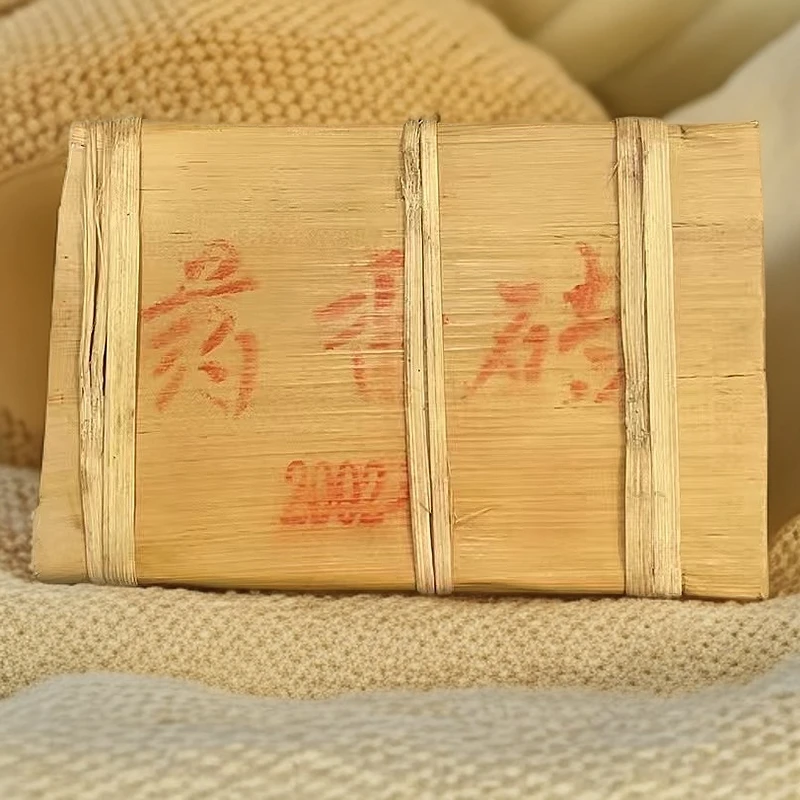 药香砖
2002